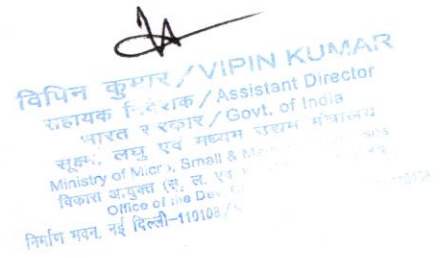 विपिन कुमार / VIPIN KUMAR
सहायक निदेशक / Assistant Director
भारत सरकार / Govt. of India
सूक्ष्म, लघु एवं मध्यम उद्यम मंत्रालय
Ministry of Micro, Small &
विकास आयुक्त (सू. ल. एवं
Office of the Dev.
निर्माण भवन, नई दिल्ली-110108 /